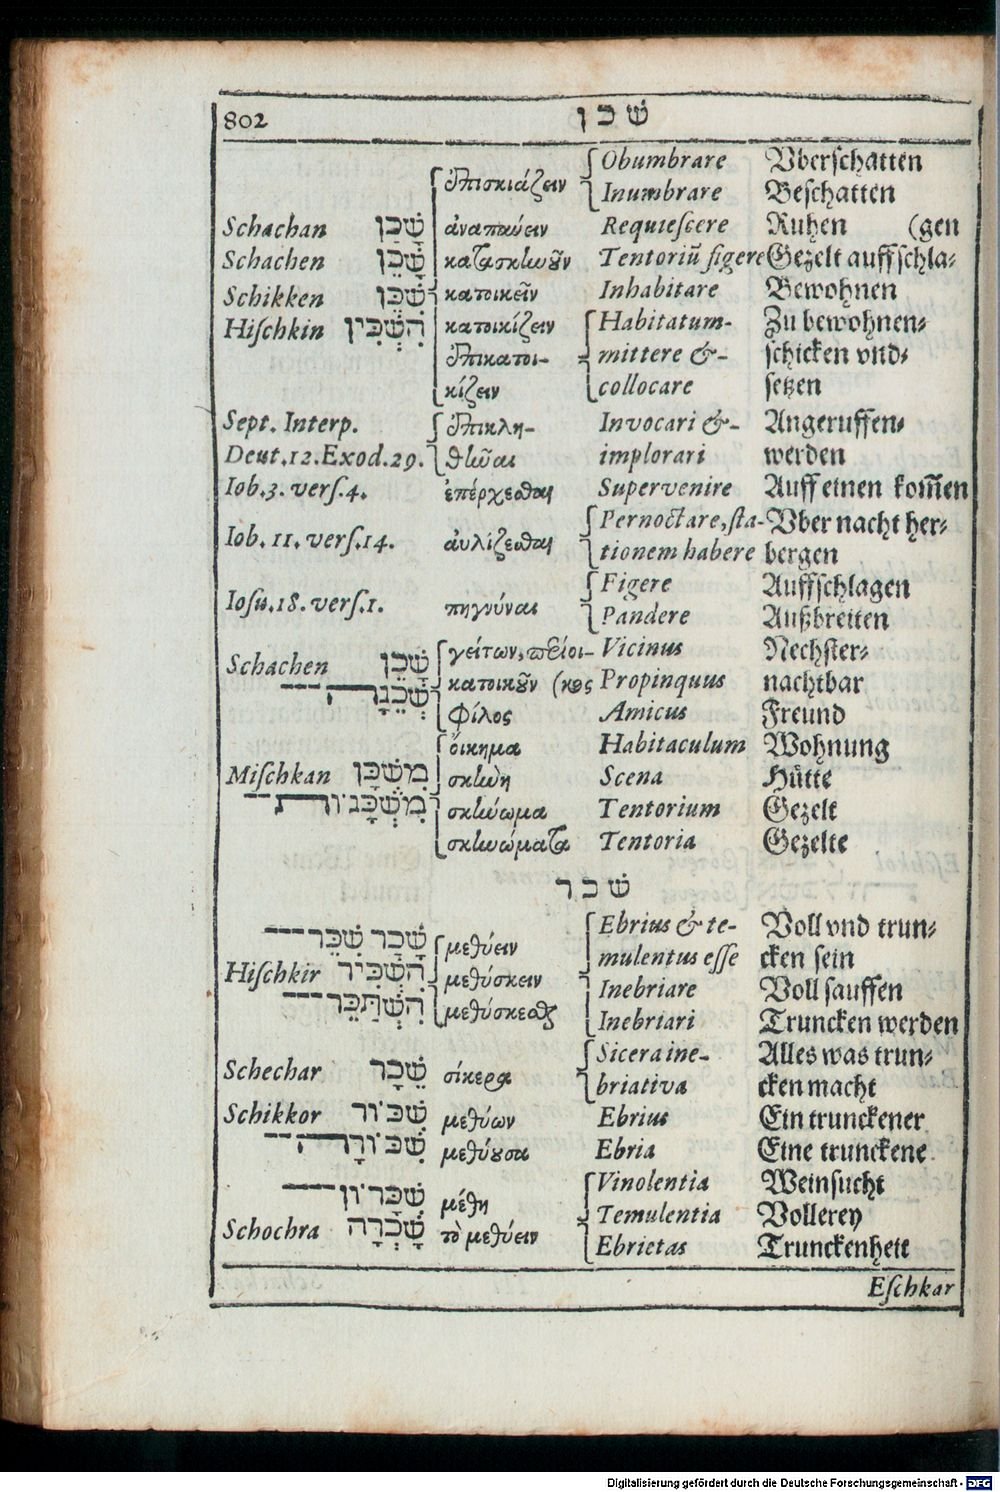 802 שכן
ἐπισκιάζειν Obumbrare Vberschatten
Inumbrare Beschatten
Schachan שָׁכַן ἀναπαύειν Requiescere Ruhen (gen
Schachen שָׁכֵן κατασκηνοῦν Tentoriū figere Gezelt auffschla-
Schikken שִׁכֵּן κατοικεῖν Inhabitare Bewohnen
Hischkin הִשְׁכִּין κατοικίζειν Habitatum- Zu bewohnen-
ἐπικατοι- mittere &- schicken vnd-
κίζειν collocare setzen
Sept. Interp. ἐπικλη- Invocari &- Angeruffen-
Deut.12.Exod.29. θῆναι implorari werden
Iob.3. vers.4. ἐπέρχεσθαι Supervenire Auff einen kom̄en
Iob. 11. vers.14. αὐλίζεσθαι Pernoctare, sta- Vber nacht her-
tionem habere bergen
Iosu.18. vers.1. πηγνύναι Figere Auffschlagen
Pandere Außbreiten
Schachen שָׁכֵן γείτων, περίοι- Vicinus Nechster-
שְׁכֵנָה--- κατοικοῦν (κος Propinquus nachtbar
φίλος Amicus Freund
οἴκημα Habitaculum Wohnung
Mischkan מִשְׁכָּן σκηνὴ Scena Hütte
מִשְׁכָּנוֹת-- σκήνωμα Tentorium Gezelt
σκηνώματα Tentoria Gezelte
שכר
שָׁכַר שִׁכֵּר--- μεθύειν Ebrius & te- Voll vnd trun-
mulentus esse cken sein
Hischkir הִשְׁכִּיר μεθύσκειν Inebriare Voll sauffen
הִשְׁתַּכֵּר--- μεθύσκεσθαι Inebriari Truncken werden
Schechar שֵׁכָר σίκερα Sicera ine- Alles was trun-
briativa cken macht
Schikkor שִׁכּוֹר μεθύων Ebrius Ein trunckener
שִׁכּוֹרָה-- μεθύουσα Ebria Eine trunckene
שִׁכָּרוֹן---- μέθη Vinolentia Weinsucht
Temulentia Vollerey
Schochra שָׁכְרָה τὸ μεθύειν Ebrietas Trunckenheit
Eschkar
Digitalisierung gefördert durch die Deutsche Forschungsgemeinschaft - DFG